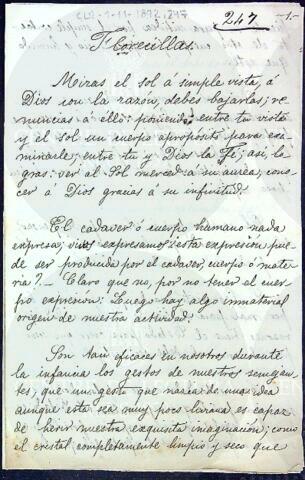 CLD-1-11-1892, 247
247
-1-
Florecillas.
Miras el sol á simple vista, á
Dios con la razón, debes bajarlas; re
nuncias á ello: poniendo entre tu vista
y el sol un cuerpo apropósito para exa
minarle; entre tu y Dios la Fé; asi, lo
gras: ver al Sol merced á su aurea; cono
cer á Dios gracias á su infinitud.
El cadaver ó cuerpo humano nada
expresa; vivos expresamos: esta expresion pue
de ser producida por el cadaver, cuerpo ó mate
ria? — Claro que no, por no tener el cuer
po expresion: Luego hay algo inmaterial
origen de nuestra actividad.
Son tan eficaces en nosotros durante
la infancia los gestos de nuestros semejan
tes, que un gesto que nazca de una idea
aunque esta sea muy poco liviana es capaz
de herir nuestra exquisita imaginación; como
el cristal completamente limpio y seco que